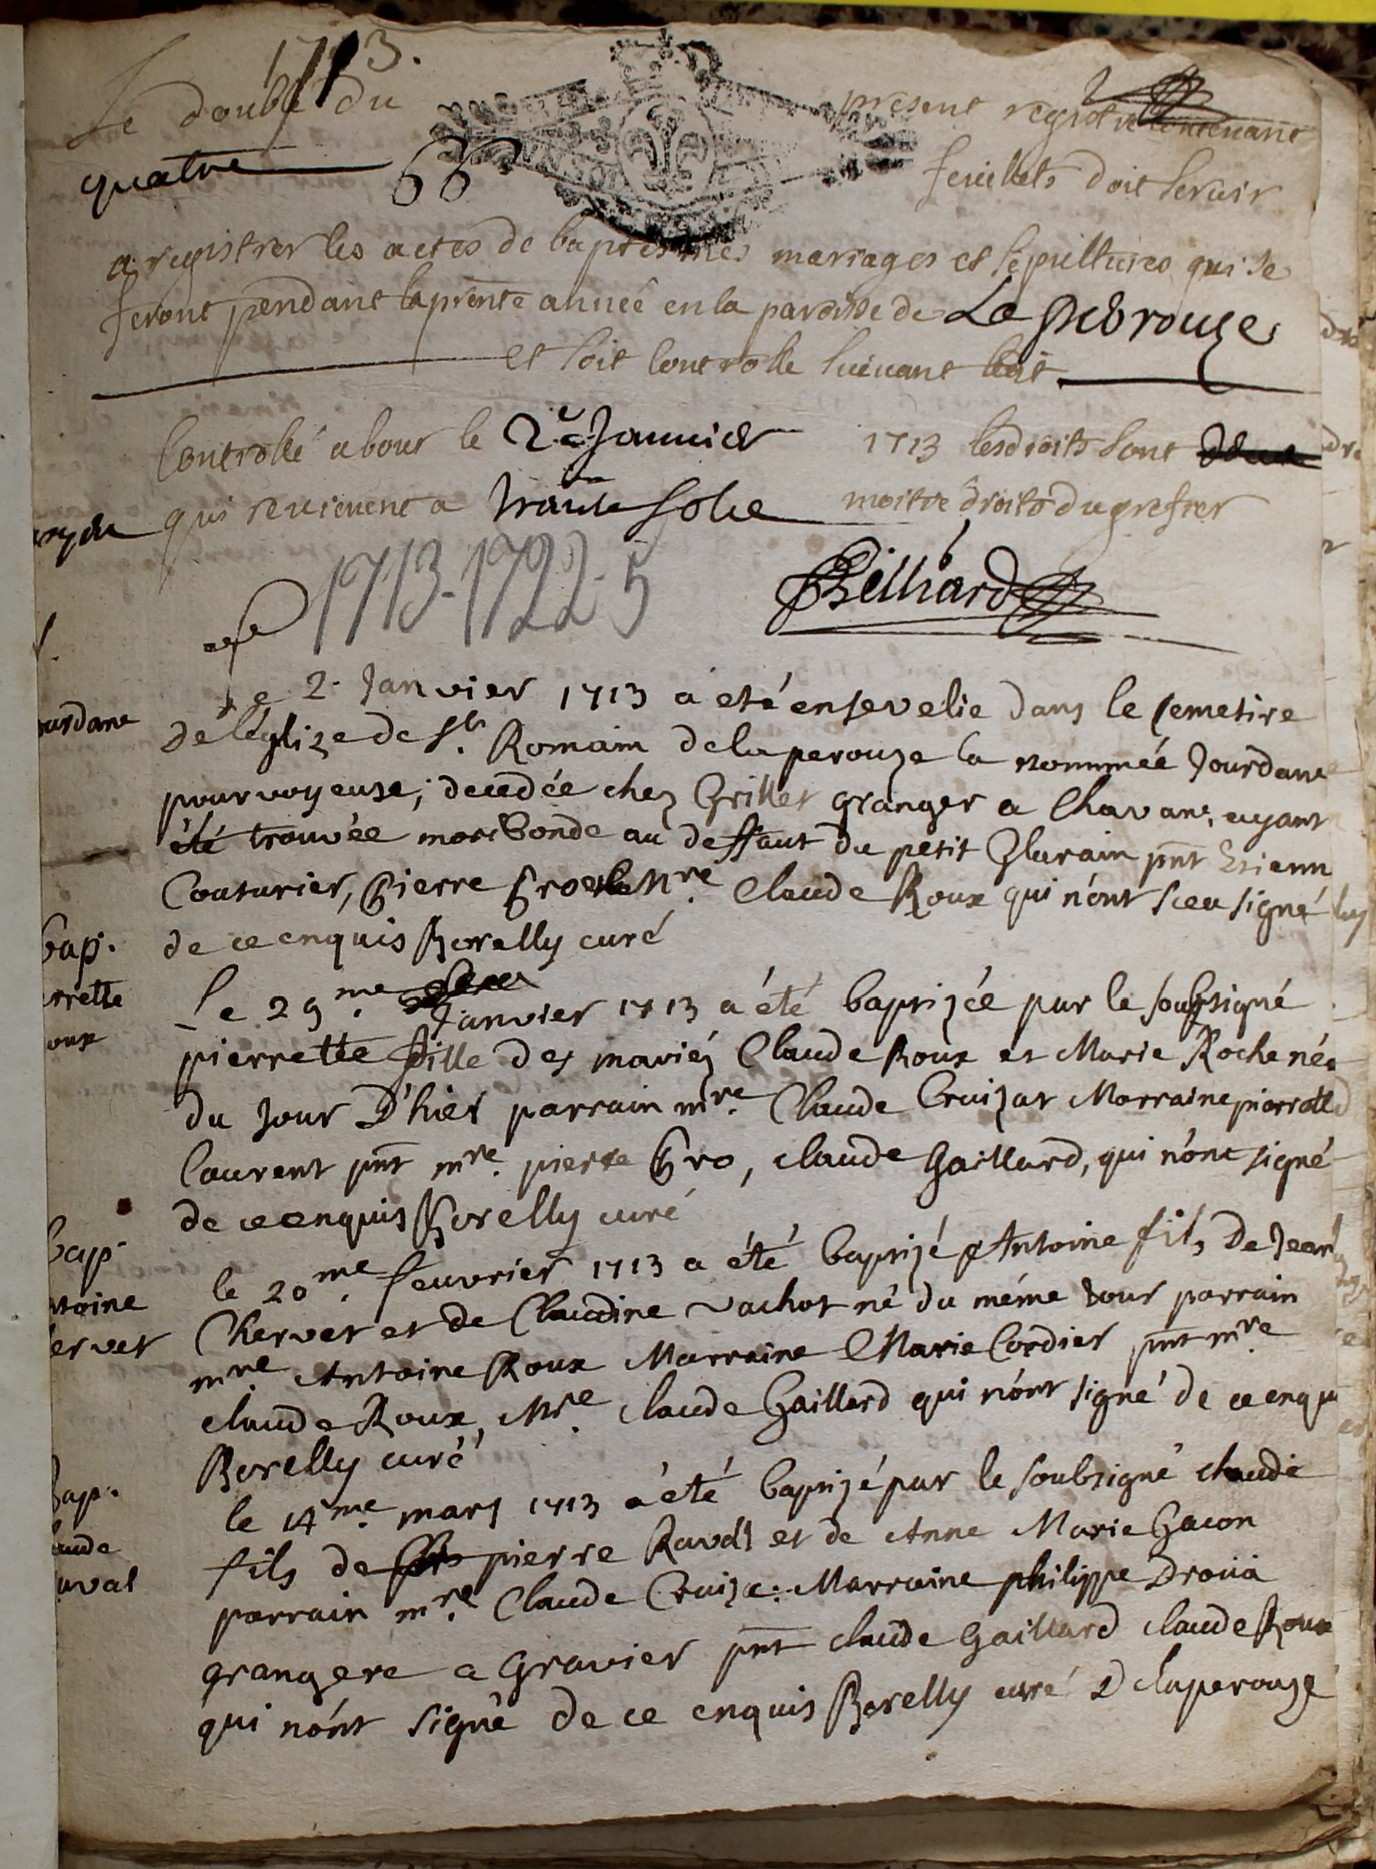 1713.
Le double du present registre contenant
quatre feuillets doit servir
a registrer les actes de baptesmes mariages et sepultures qui se
feront pendant la pnte année en la paroisse de La perouze
et soit controllé suivant
Controllé a bour le 2e Janvier 1713 les droits sont
qui revienent a trante sols moitié droits du grefier
1713-1722-5
Billiard
Le 2. Janvier 1713 a eté ensevelie dans le cemetire
de léglize de St. Romain de la perouze la nommée Jourdane
pourvoyeuse; decedée chez Grillet granger a Chavans, ayant
été trouvée moribonde au deffaut du petit pnt Etienn
Couturier, Pierre Mre. Claude Roux qui n'ont sceu signé
de ce enquis Borelly curé
Le 29me. Janvier 1713 a été baptizée par le soubsigné
pierrette fille des mariéz Claude Roux et Marie Roche née
du Jour D'hier parrain mre. Claude Cruizat Marraine pierrette
Laurent pnt mre. pierre Gro, claude Gaillard, qui n'ont signé
de ce enquis Borelly curé
le 20me. feuvrier 1713 a été baptizé Antoine fils de Jean
Chervet et de Claudine vachot né du méme Jour parrain
mre Antoine Roux Marraine Marie Cordier pnt mre
claude Roux, Mre. claude Gaillard qui n'ont signé de ce enqu
Borelly curé
le 14me. mars 1713 a été baptizé par le soubsigné claude
fils de pierre Ravat et de Anne Marie Gacon
parrain mre. Claude Cruiza: Marraine philippe Droüa
grangere a Gravier pnt claude Gaillard claude Roux
qui n'ont signé de ce enquis Borelly curé De laperouze
ourdane
bap.
errette
oux
bap.
ntoine
ervet
bap.
aude
avat